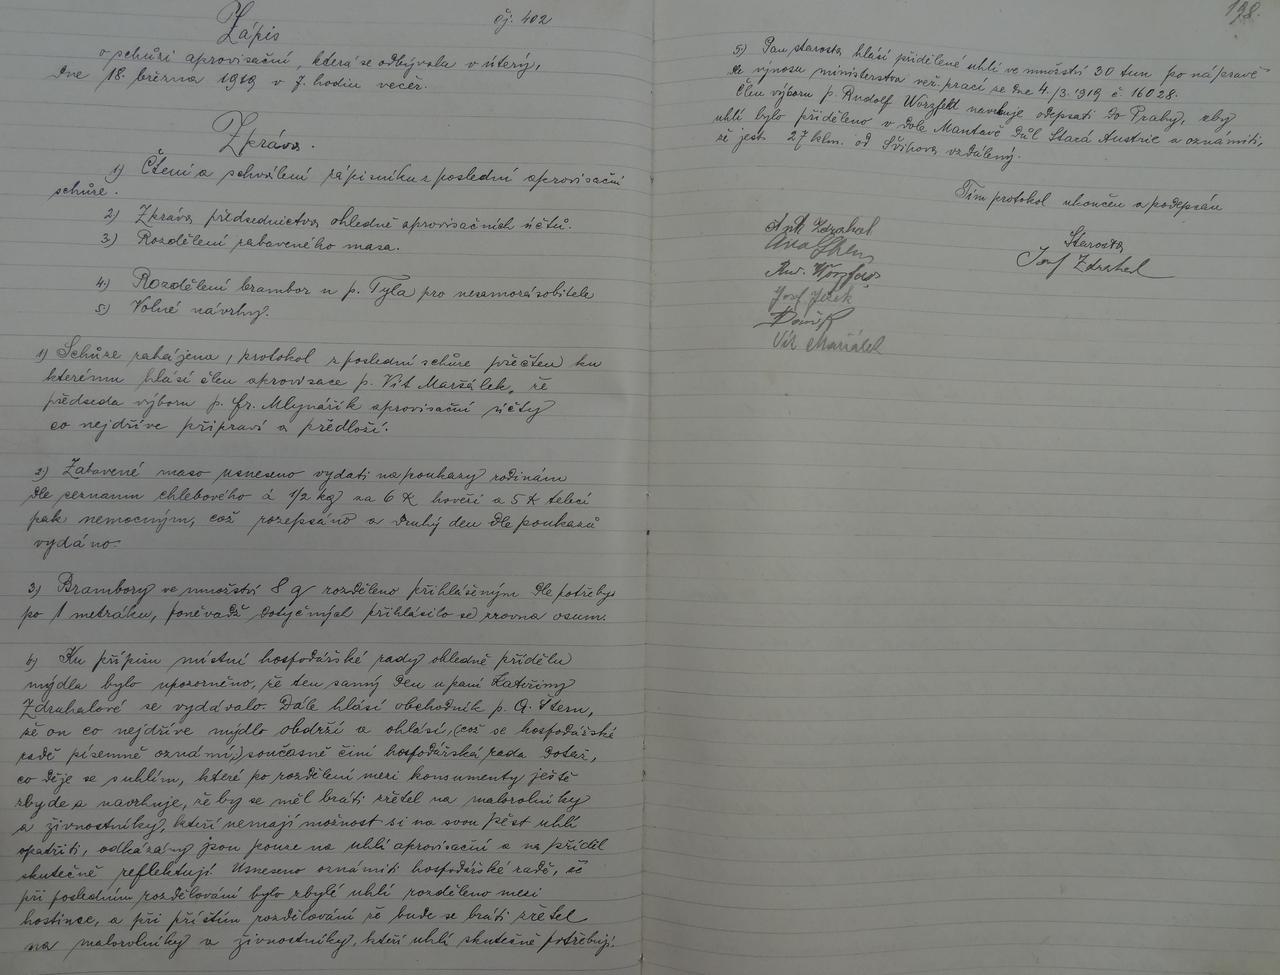 Zápis
čj. 402
o schůzi aprovisační, která se odbývala v úterý,
dne 18. března 1919 v 7. hodin večer.
Zpráva.
1) Čtení a schválení zápisníku z poslední aprovisační
schůze.
2) Zpráva předsednictva ohledně aprovisačních účtů.
3) Rozdělení zabaveného masa.
4) Rozdělení brambor u p. Tyla pro nesamozásobitele
5) Volné návrhy.
1) Schůze zahájena, protokol z poslední schůze přečten ku
kterému hlásí člen aprovisace p. Vít Maršálek, že
předseda výboru p. Fr. Mlynářík aprovisační účty
co nejdříve připraví a předloží.
2) Zabavené maso usneseno vydati na poukazy rodinám
dle seznamu chlebového á 1/2 kg za 6 K hovězí a 5 K telecí
pak nemocným, což rozepsáno a druhý den dle poukazů
vydáno.
3) Brambory ve množství 8 q rozděleno přihlášeným dle potřeby
po 1 metráku, poněvadž dotyčných přihlásilo se zrovna osum.
6) Ku přípisu místní hospodářské rady ohledně přídělu
mýdla bylo upozorněno, že ten samý den u paní Kateřiny
Zdrahalové se vydávalo. Dále hlásí obchodník p. A. Stern,
že on co nejdříve mýdlo obdrží a ohlásí, (což se hospodářské
radě písemně oznámí,) současně činí hospodářská rada dotaz,
co děje se s uhlím, které po rozdělení mezi konsumenty ještě
zbyde a navrhuje, že by se měl bráti zřetel na malorolníky
a živnostníky, kteří nemají možnost si na svou pěst uhlí
opatřiti, odkázány jsou pouze na uhlí aprovisační a na příděl
skutečně reflektují. Usneseno oznámiti hospodářské radě, že
při posledním rozdělování bylo zbylé uhlí rozděleno mezi
hostince, a při příštím rozdělování že bude se bráti zřetel
na malorolníky a živnostníky, kteří uhlí skutečně potřebují.
198.
5) Pan starosta hlásí přidělené uhlí ve množství 30 tun po nápravě
dle výnosu ministerstva veř. prací ze dne 4./3. 1919 č. 16028.
Člen výboru p. Rudolf Worzfeld navrhuje odepsati do Prahy, aby
uhlí bylo přiděleno v dole Mantově Důl Stará Austrie a oznámiti,
že jest 27 klm. od Švihova vzdálený.
Tím protokol ukončen a podepsán
Ant. Zdrahal
Starosta
Josef Zdrahal
Rud. Worzfeld
Josef Ježek
Vít Maršálek